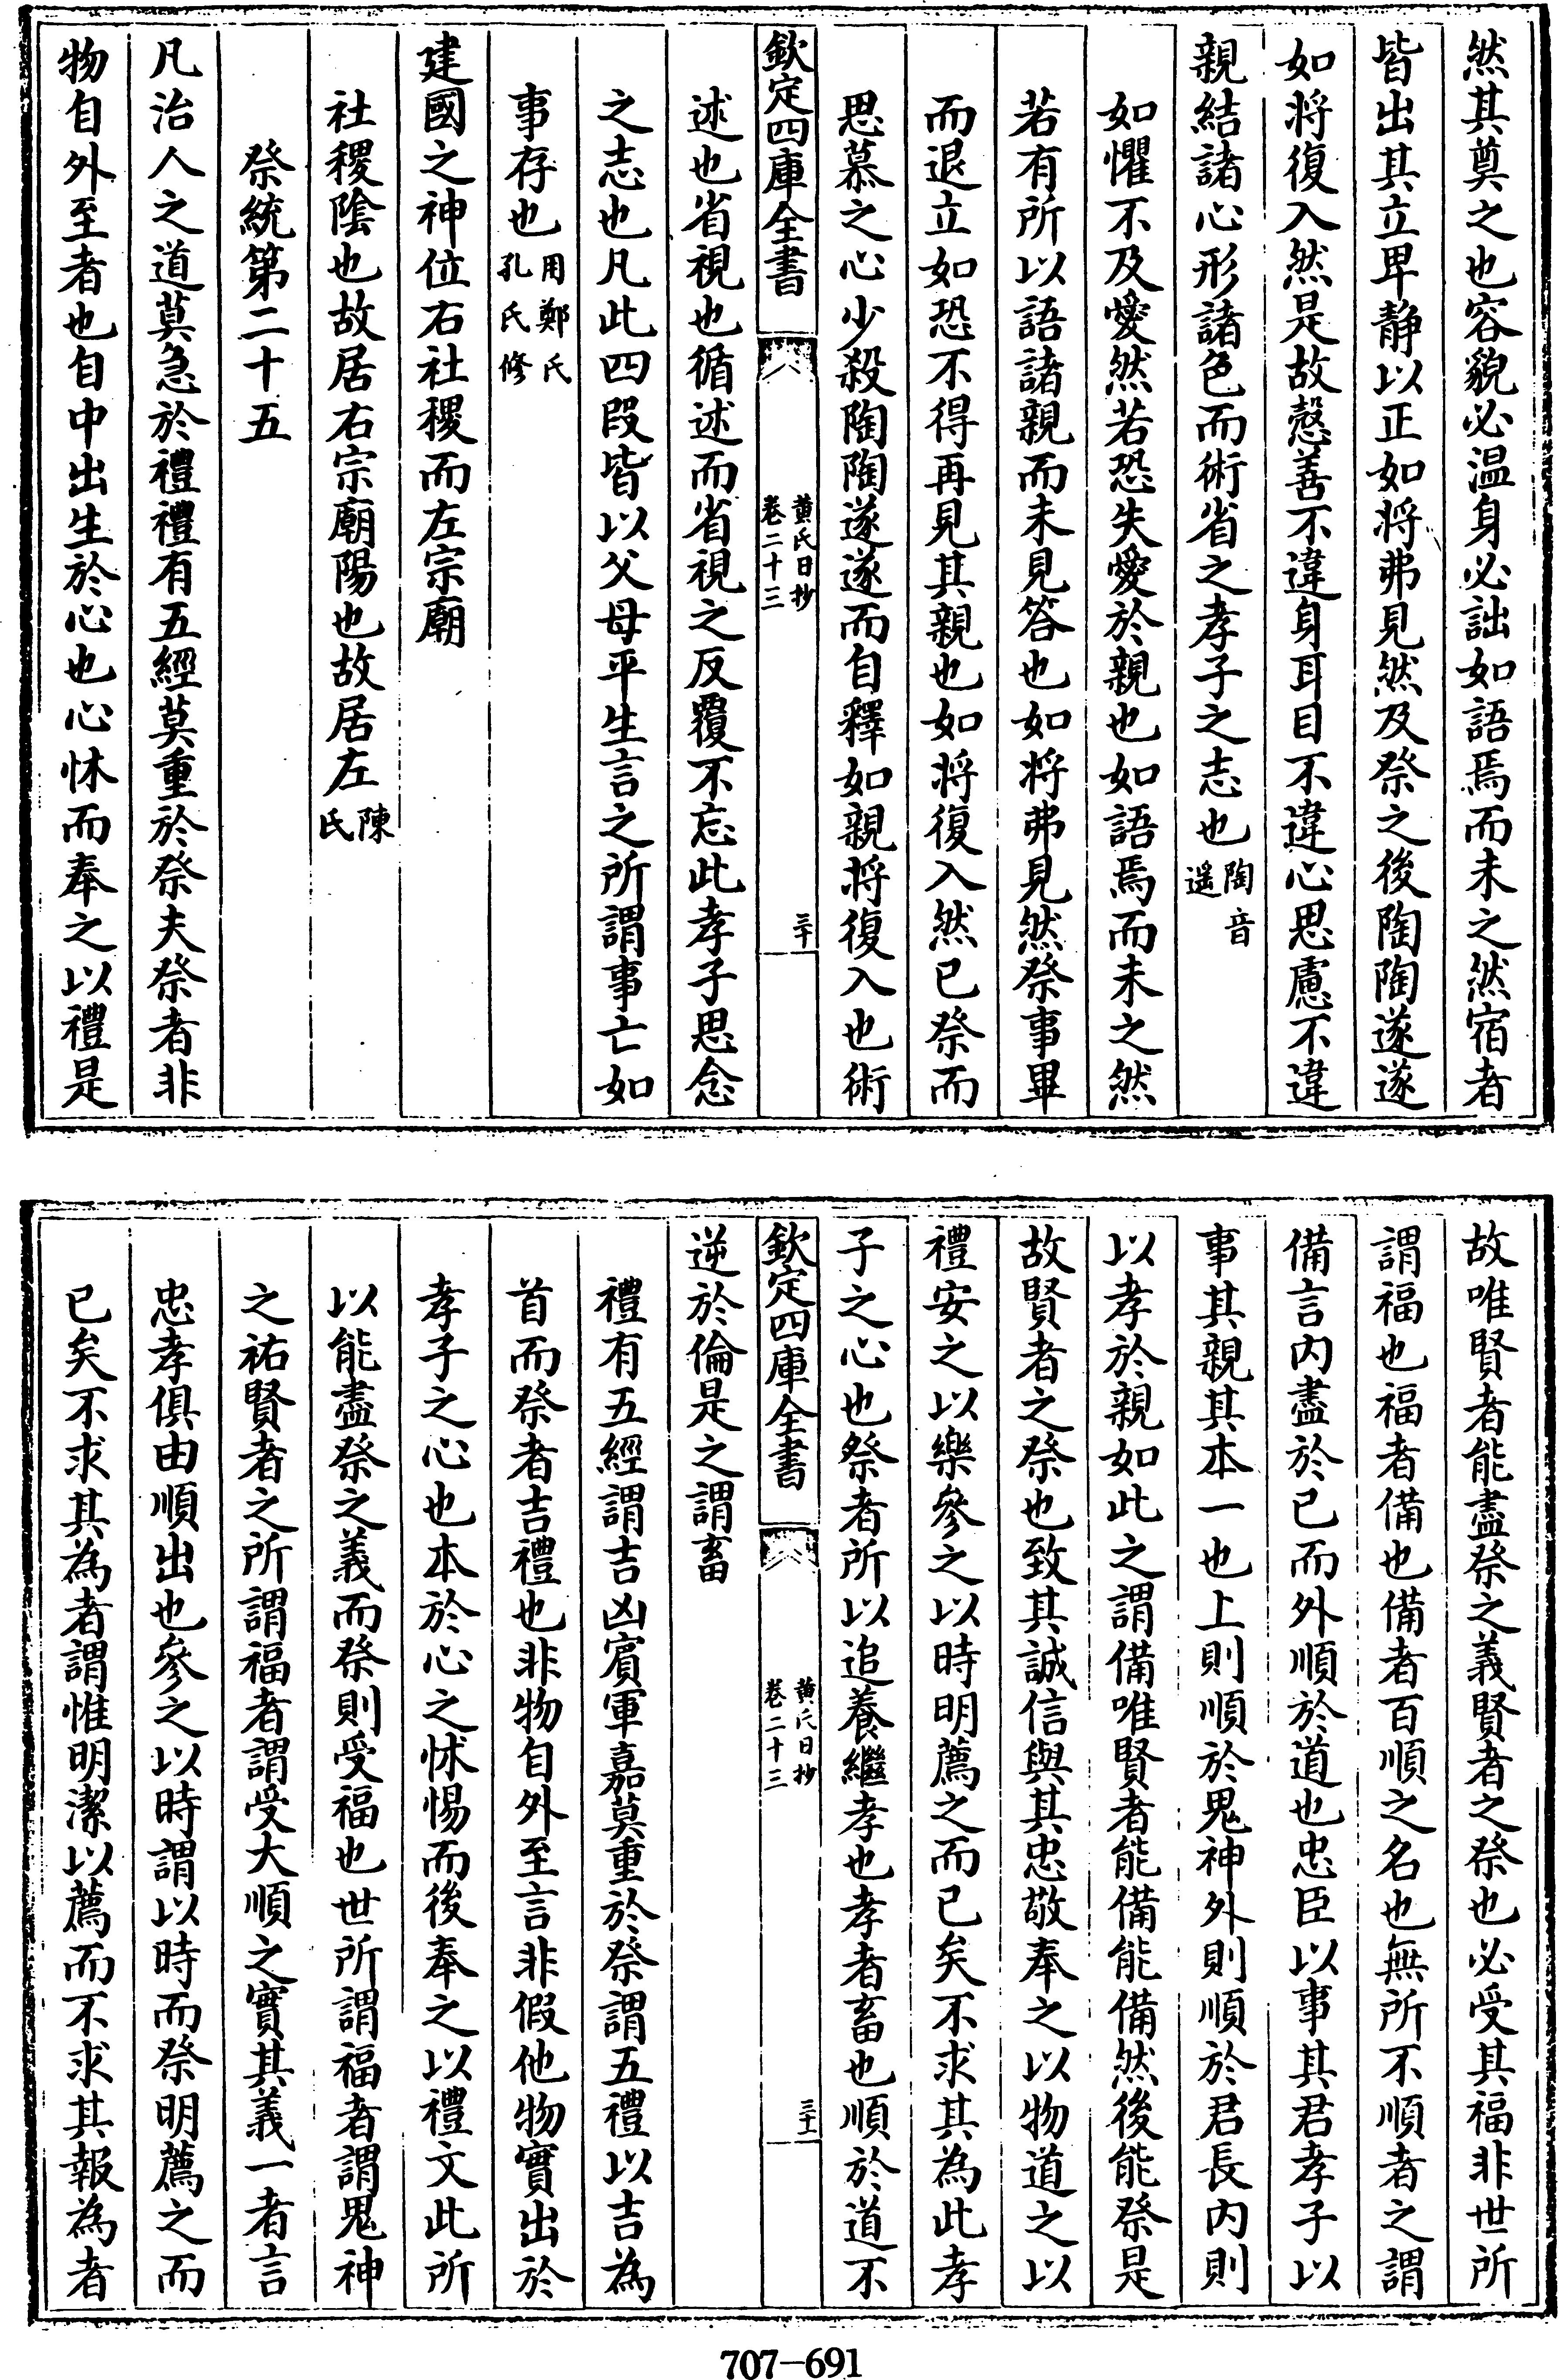 然其奠之也容貌必温身必詘如語焉而未之然宿者
皆出其立卑静以正如將弗見然及祭之後陶陶遂遂
如將復入然是故慤善不違身耳目不違心思慮不違
親結諸心形諸色而術省之孝子之志也陶音遥
如懼不及愛然若恐失愛於親也如語焉而未之然
若有所以語諸親而未見答也如將弗見然祭事畢
而退立如恐不得再見其親也如將復入然已祭而
思慕之心少殺陶陶遂遂而自釋如親將復入也術
欽定四庫全書
黄氏日抄
卷二十三
三十
述也省視也循述而省視之反覆不忘此孝子思念
之志也凡此四段皆以父母平生言之所謂事亡如
事存也用鄭氏孔氏修
建國之神位右社稷而左宗廟
社稷陰也故居右宗廟陽也故居左陳氏
祭統第二十五
凡治人之道莫急於禮禮有五經莫重於祭夫祭者非
物自外至者也自中出生於心也心怵而奉之以禮是
故唯賢者能盡祭之義賢者之祭也必受其福非世所
謂福也福者備也備者百順之名也無所不順者之謂
備言内盡於已而外順於道也忠臣以事其君孝子以
事其親其本一也上則順於鬼神外則順於君長内則
以孝於親如此之謂備唯賢者能備能備然後能祭是
故賢者之祭也致其誠信與其忠敬奉之以物道之以
禮安之以樂參之以時明薦之而已矣不求其為此孝
子之心也祭者所以追養繼孝也孝者畜也順於道不
欽定四庫全書
黄氏日抄
卷二十三
三十一
逆於倫是之謂畜
禮有五經謂吉凶賓軍嘉莫重於祭謂五禮以吉為
首而祭者吉禮也非物自外至言非假他物實出於
孝子之心也本於心之怵惕而後奉之以禮文此所
以能盡祭之義而祭則受福也世所謂福者謂鬼神
之祐賢者之所謂福者謂受大順之實其義一者言
忠孝俱由順出也參之以時謂以時而祭明薦之而
已矣不求其為者謂惟明潔以薦而不求其報為者
707-691